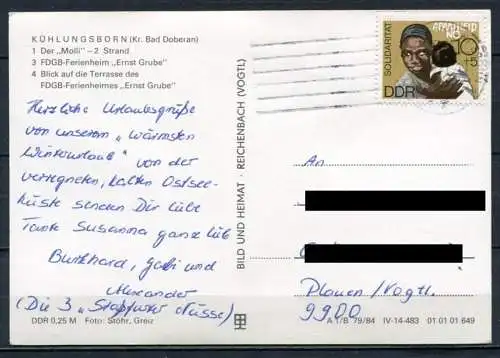 KÜHLUNGSBORN (Kr. Bad Doberan)
1 Der „Molli" – 2 Strand
3 FDGB-Ferienheim „Ernst Grube"
4 Blick auf die Terrasse des
FDGB-Ferienheimes „Ernst Grube"
Herzliche Urlaubsgrüße
von unserem „wärmsten
Winterurlaub" von der
verregneten, kalten Ostsee-
küste senden Dir liebe
Tante Susanna ganz lieb
Burkhard, Gabi und
Alexander
(Die 3 Nüsse)
DDR 0,25 M Foto: Stöhr, Greiz
BILD UND HEIMAT · REICHENBACH (VOGTL)
SOLIDARITÄT
APARTHEID
NO
10
+5
DDR
An
Plauen/Vogtl.
9900
A 1/B 79/84 IV-14-483 01 01 01 649